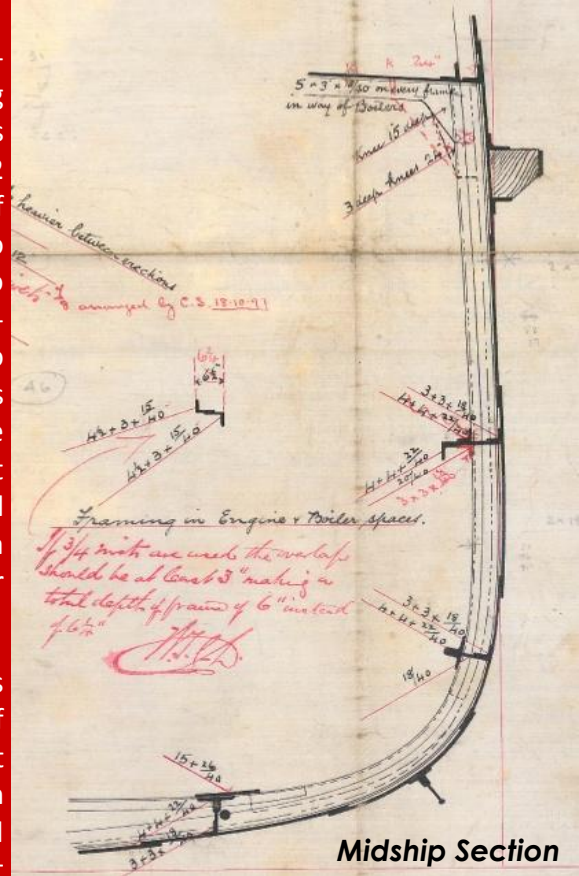 24"
5 + 3 × 18/50 on every frame
in way of Boilers
Knee 15 deep
3 deep Knees 24
heavier between erections
arranged by C.S. 18·10·97
46
6½
4½ + 3 + 15/40
4½ + 3 + 15/40
3 + 3 + 18/40
4 + 4 + 22/40
4 + 4 + 22/40
20/40
3 × 3 ×
Framing in Engine & Boiler spaces.
If 3/4 rivets are used the overlap
should be at least 3" making a
total depth of frame of 6" instead
of 6½"
3 + 3 + 18/40
4 + 4 + 22/40
18/40
15 + 26/40
4 + 4 + 22/40
3 + 3 × 18/40
Midship Section